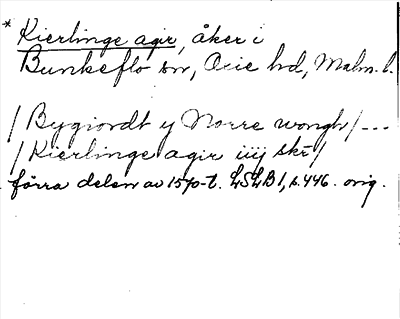 * Kierlinge agir, åker i
Bunkeflo sn, Oxie hd, Malm. l.
/ Bygiondt y Norre wongh / ---
/ Kierlinge agir iiij skr /
förra delen av 1570-t. LSLB 1, s. 446. orig.